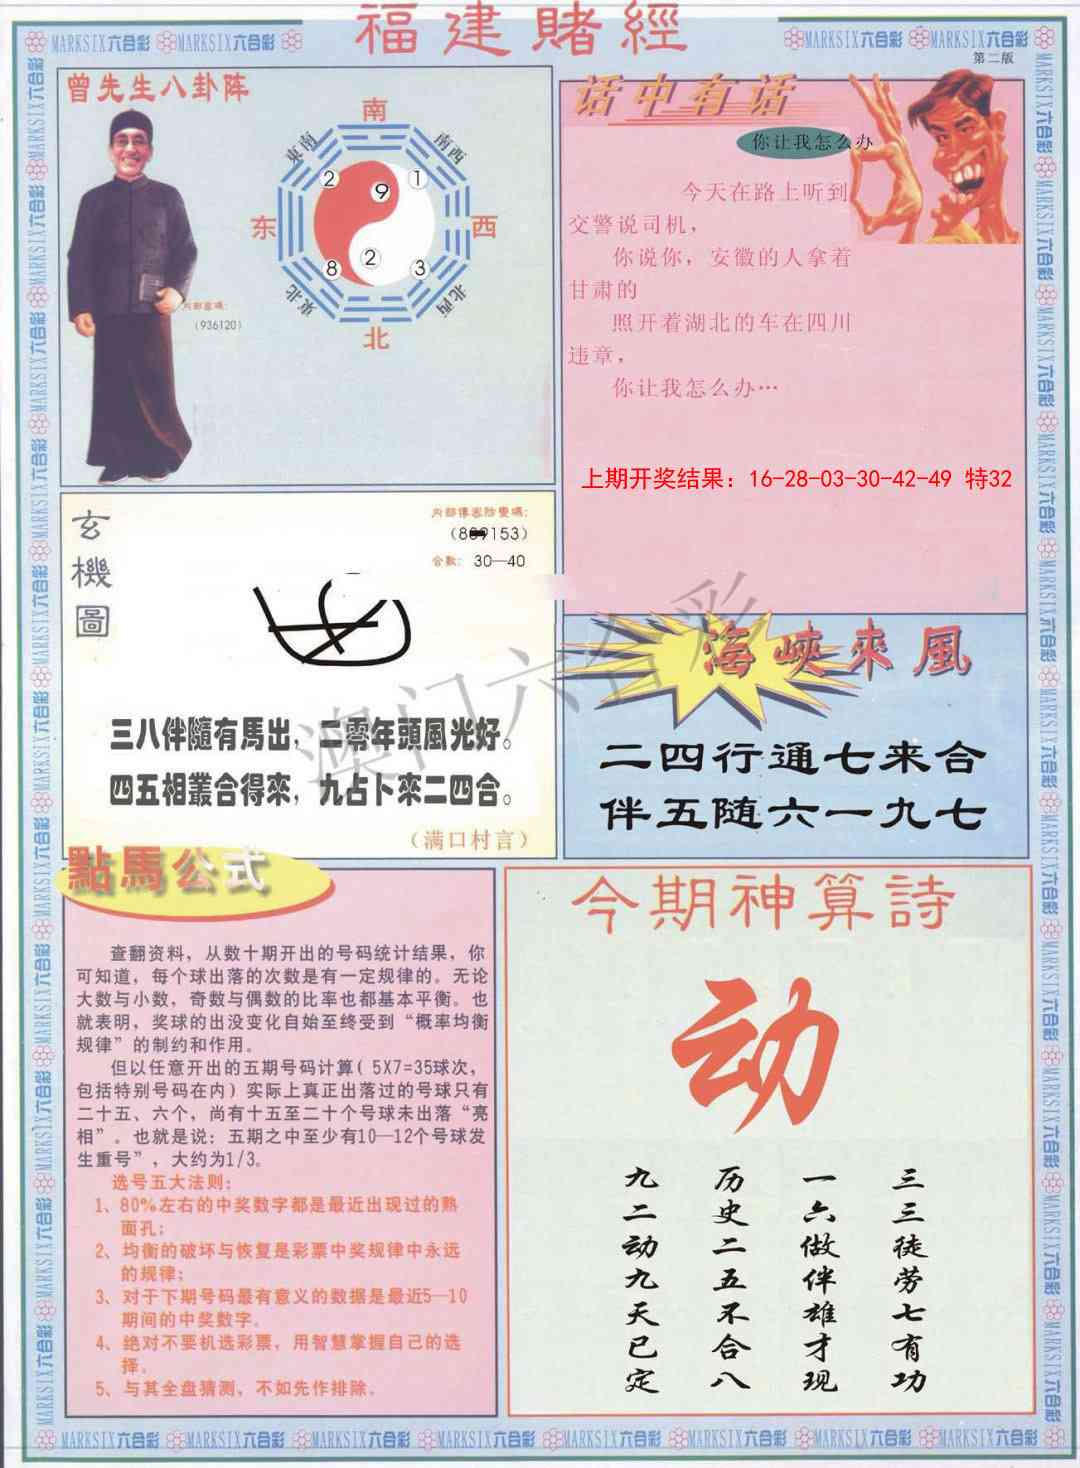 福建賭經
MARKSIX六合彩 MARKSIX六合彩
MARKSIX六合彩 MARKSIX六合彩
第二版
曾先生八卦阵
南
東南
南西
2
9
1
东
西
8
2
3
東北
北西
北
内部密碼:
(936120)
话中有话
你让我怎么办
今天在路上听到
交警说司机，
你说你，安徽的人拿着
甘肃的
照开着湖北的车在四川
违章，
你让我怎么办…
上期开奖结果：16-28-03-30-42-49 特32
玄機圖
153)
合数: 30—40
三八伴隨有馬出，二零年頭風光好。
四五相叢合得來，九占卜來二四合。
（满口村言）
海峽來風
二四行通七来合
伴五随六一九七
澳门六合彩
點馬公式
查翻资料，从数十期开出的号码统计结果，你
可知道，每个球出落的次数是有一定规律的。无论
大数与小数，奇数与偶数的比率也都基本平衡。也
就表明，奖球的出没变化自始至终受到“概率均衡
规律”的制约和作用。
但以任意开出的五期号码计算( 5X7=35球次，
包括特别号码在内）实际上真正出落过的号球只有
二十五、六个，尚有十五至二十个号球未出落“亮
相”。也就是说：五期之中至少有10—12个号球发
生重号”，大约为1/3。
选号五大法则：
1、80%左右的中奖数字都是最近出现过的熟
面孔；
2、均衡的破坏与恢复是彩票中奖规律中永远
的规律；
3、对于下期号码最有意义的数据是最近5—10
期间的中奖数字。
4、绝对不要机选彩票，用智慧掌握自己的选
择。
5、与其全盘猜测，不如先作排除。
今期神算詩
动
三三徒劳七有功
一六做伴雄才现
历史二五不合八
九二动九天已定
MARKSIX六合彩 MARKSIX六合彩 MARKSIX六合彩 MARKSIX六合彩 MARKSIX六合彩 MARKSIX六合彩 MARKSIX六合彩 MARKSIX六合彩